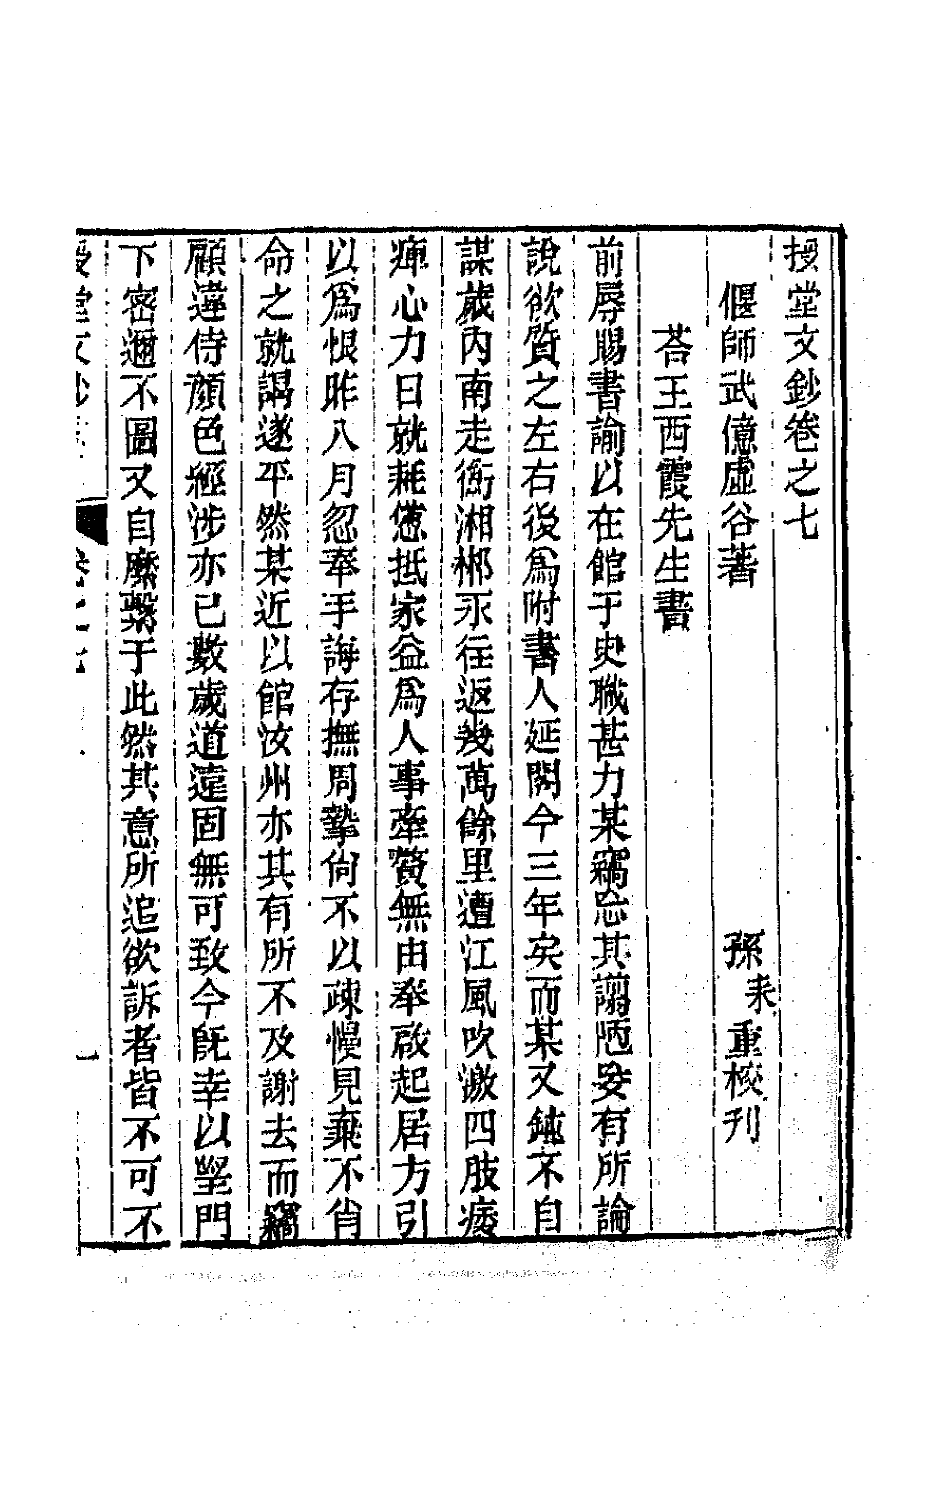 授堂文鈔卷之七
偃師武億虛谷著 孫耒重校刊
荅王西霞先生書
前辱賜書諭以在館于史職甚力某竊忘其謭陋妄有所論
說欲質之左右後爲附書人延閣今三年矣而某又鈍不自
謀歲內南走衡湘郴永往返幾萬餘里遭江風吹激四肢痿
痺心力日就耗憊抵家益爲人事牽贅無由奉啟起居方引
以爲恨昨八月忽奉手誨存撫周摯尙不以疎慢見棄不肖
命之就謁遂平然某近以館汝州亦其有所不及謝去而竊
顧違侍顏色經涉亦已數歲道遠固無可致今旣幸以望門
下密邇不圖又自縻繫于此然其意所追欲訴者皆不可不
授堂文鈔 卷之七 一